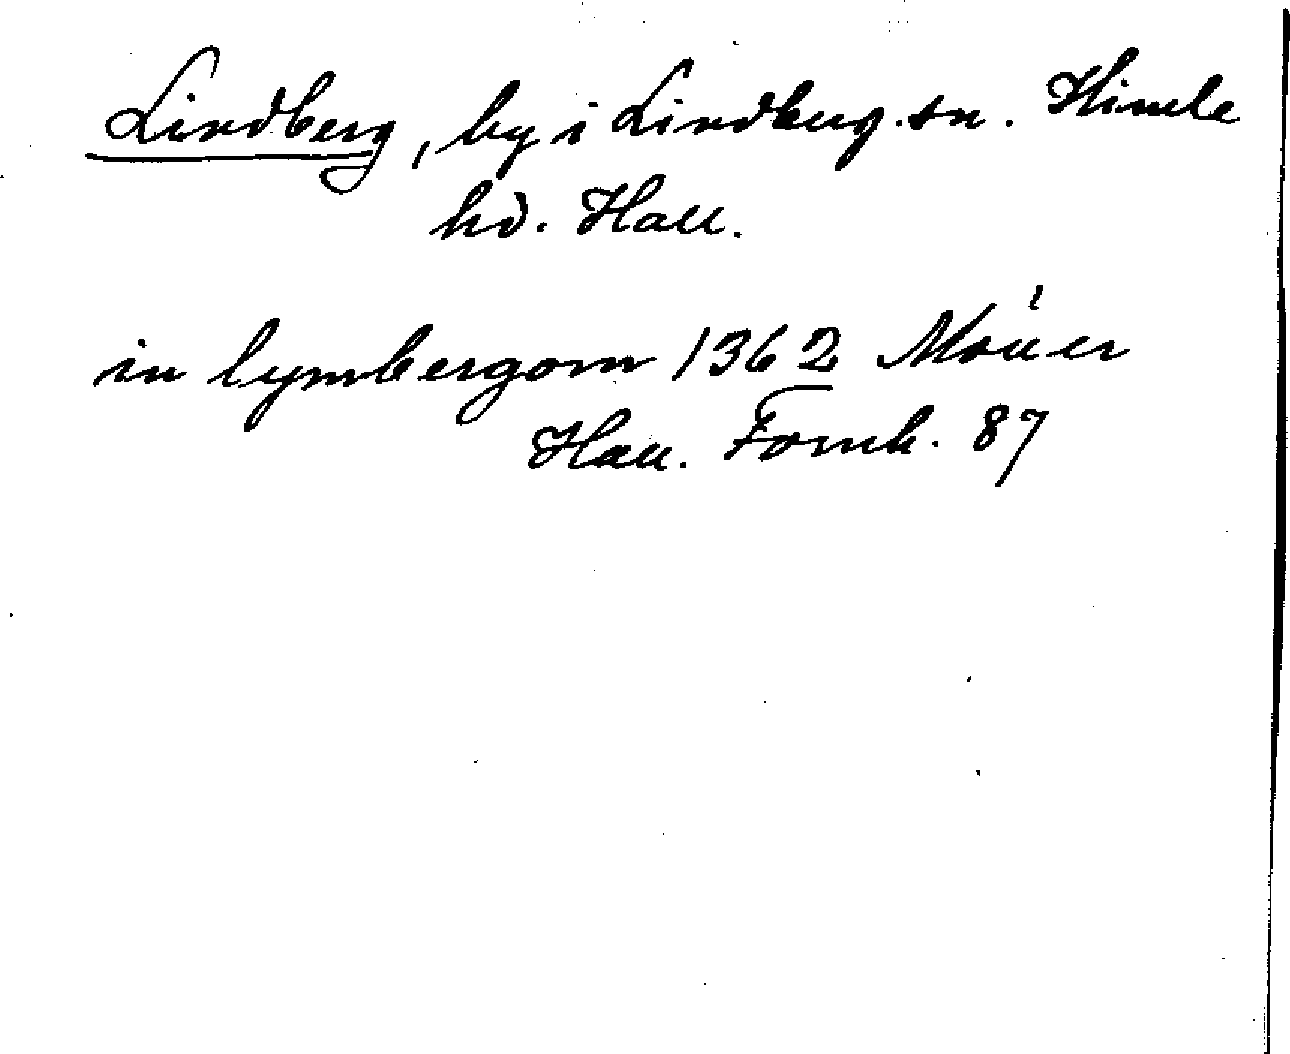 Lindberg, by i Lindberg sn. Himle
hd. Hall.
in lymbergom 1362
Hall. Fornh. 87